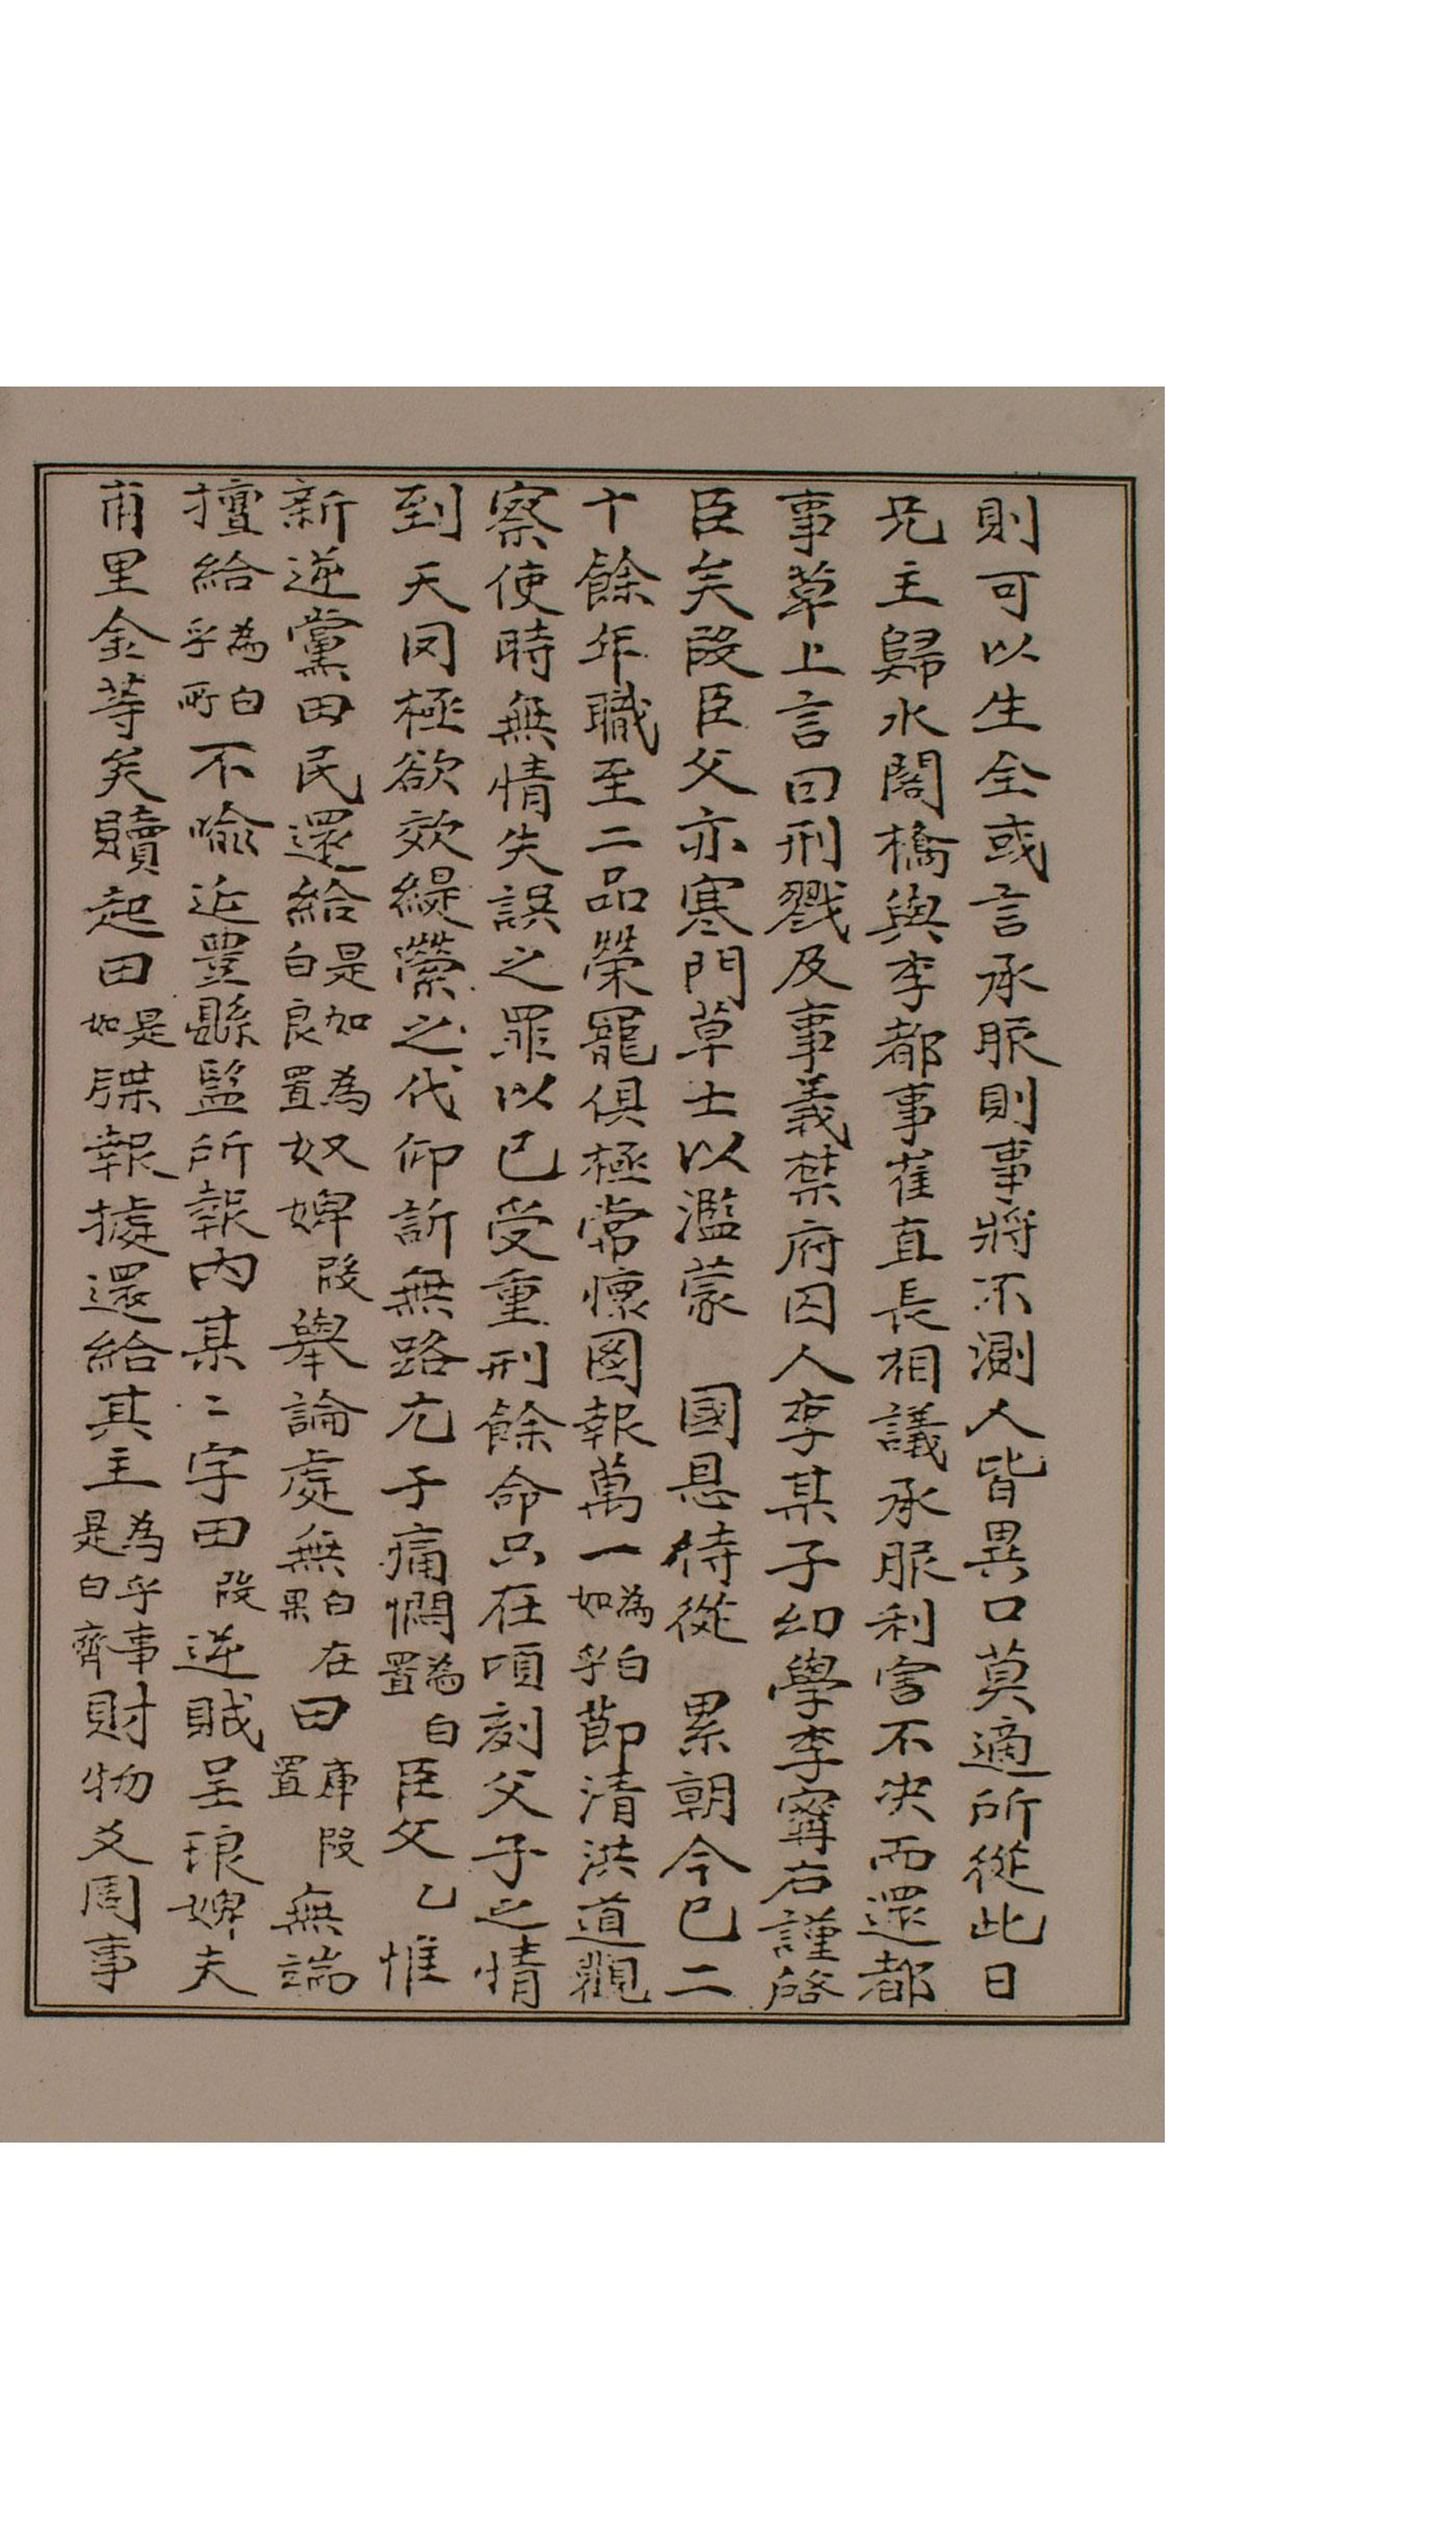 則可以生全或言承服則事將不測人皆異口莫適所從此日
兄主歸水閣橋與李都事崔直長相議承服利害不決而還都
事草上言曰刑戮及事義禁府囚人李某子幼學李寗右謹啓
臣矣段臣父亦寒門草士以濫蒙 國恩侍從 累朝今已二
十餘年職至二品榮寵俱極常懷圖報萬一為白如乎節清洪道觀
察使時無情失誤之罪以已受重刑餘命只在頃刻父子之情
到天罔極欲效緹縈之代仰訴無路尤于痛憫為白置臣父乙惟
新逆黨田民還給是加為白良置奴婢段舉論處無白在果田庫段置無端
擅給為白乎所不喩近豊縣監所報內某〻字田段逆賊呈琅婢夫
莆里金等矣贖起田是如牒報據還給其主為乎事是白齊財物爻周事